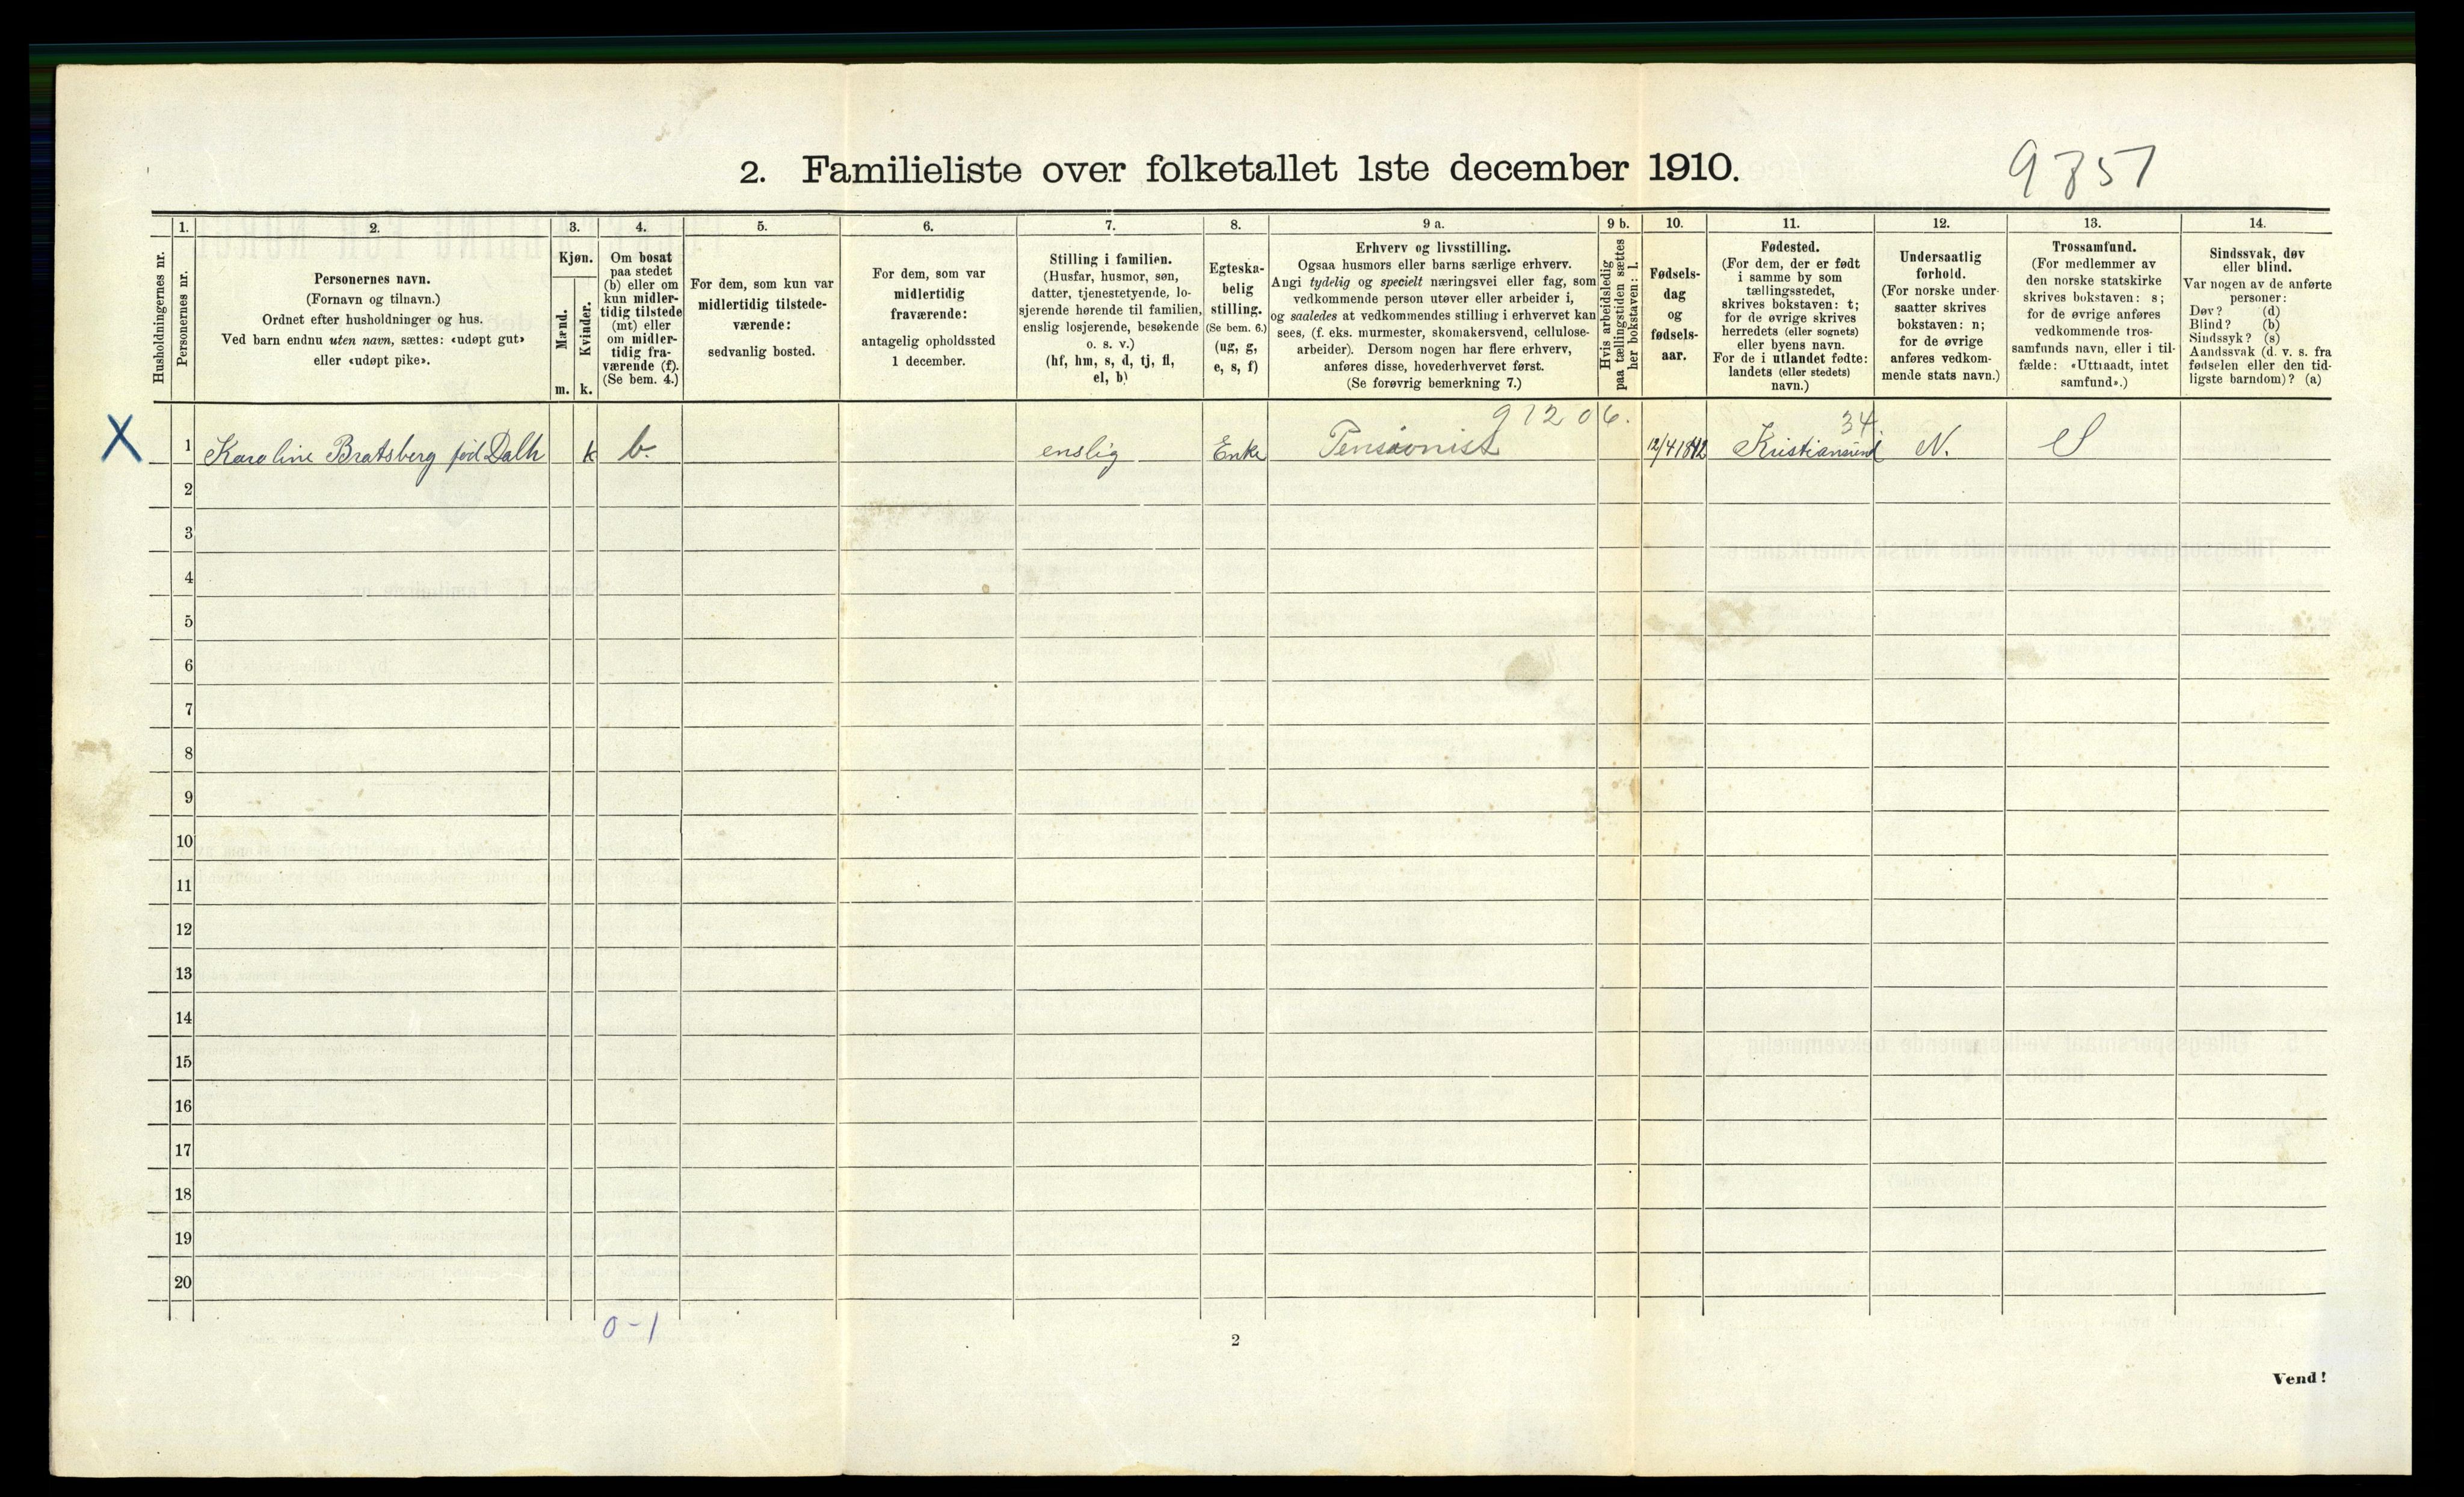 2. Familieliste over folketallet 1ste december 1910.
9857
Husholdningernes nr.
1.
Personernes nr.
2.
Personernes navn.
(Fornavn og tilnavn.)
Ordnet efter husholdninger og hus.
Ved barn endnu uten navn, sættes: «udøpt gut»
eller «udøpt pike».
3.
Kjøn.
Mænd.
m.
Kvinder.
k.
4.
Om bosat
paa stedet
(b) eller om
kun midler-
tidig tilstede
(mt) eller
om midler-
tidig fra-
værende (f).
(Se bem. 4.)
5.
For dem, som kun var
midlertidig tilstede-
værende:
sedvanlig bosted.
6.
For dem, som var
midlertidig
fraværende:
antagelig opholdssted
1 december.
7.
Stilling i familien.
(Husfar, husmor, søn,
datter, tjenestetyende, lo-
sjerende hørende til familien,
enslig losjerende, besøkende
o. s. v.)
(hf, hm, s, d, tj, fl,
el, b)
8.
Egteska-
belig
stilling.
(Se bem. 6.)
(ug, g,
e, s, f)
9 a.
Erhverv og livsstilling.
Ogsaa husmors eller barns særlige erhverv.
Angi tydelig og specielt næringsvei eller fag, som
vedkommende person utøver eller arbeider i,
og saaledes at vedkommendes stilling i erhvervet kan
sees, (f. eks. murmester, skomakersvend, cellulose-
arbeider). Dersom nogen har flere erhverv,
anføres disse, hovederhvervet først.
(Se forøvrig bemerkning 7.)
9 b.
Hvis arbeidsledig
paa tællingstiden sættes
her bokstaven: l.
10.
Fødsels-
dag
og
fødsels-
aar.
11.
Fødested.
(For dem, der er født
i samme by som
tællingsstedet,
skrives bokstaven: t;
for de øvrige skrives
herredets (eller sognets)
eller byens navn.
For de i utlandet fødte:
landets (eller stedets)
navn.)
12.
Undersaatlig
forhold.
(For norske under-
saatter skrives
bokstaven: n;
for de øvrige
anføres vedkom-
mende stats navn.)
13.
Trossamfund.
(For medlemmer av
den norske statskirke
skrives bokstaven: s;
for de øvrige anføres
vedkommende tros-
samfunds navn, eller i til-
fælde: «Uttraadt, intet
samfund».)
14.
Sindssvak, døv
eller blind.
Var nogen av de anførte
personer:
Døv? (d)
Blind? (b)
Sindssyk? (s)
Aandssvak (d. v. s. fra
fødselen eller den tid-
ligste barndom)? (a)
91206. 34.
X 1 Karoline Bratsberg fød Dalh k b. enslig Enke Pensionist 12/4 1842 Kristiansund N. S
2
3
4
5
6
7
8
9
10
11
12
13
14
15
16
17
18
19
20
0-1
2
Vend!